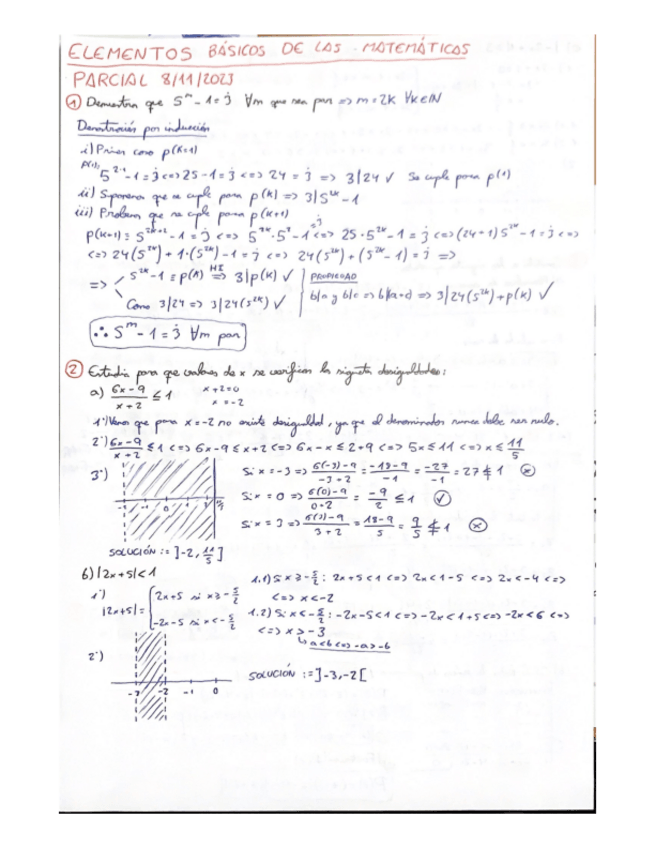 ELEMENTOS BÁSICOS DE LAS MATEMÁTICAS
PARCIAL 8/11/2023
① Demuestra que 5^m - 1 = 3̇ ∀m que sea par => m = 2K ∀K∈IN
Demostración por inducción
i) Primer caso p(K=1)
p(1): 5^{2·1} - 1 = 3̇ <=> 25 - 1 = 3̇ <=> 24 = 3̇ => 3|24 ✓ Se cuple para p(1)
ii) Suponemos que se cuple para p(k) => 3|5^{2K} - 1
iii) Probemos que se cuple para p(K+1)
p(K+1) = 5^{2K+2} - 1 = 3̇ <=> 5^{2K}·5^2 - 1 = 3̇ <=> 25·5^{2K} - 1 = 3̇ <=> (24+1)5^{2K} - 1 = 3̇ <=>
<=> 24(5^{2K}) + 1·(5^{2K}) - 1 = 3̇ <=> 24(5^{2K}) + (5^{2K} - 1) = 3̇ =>
=> 5^{2K} - 1 = p(K) HI => 3|p(K) ✓
PROPIEDAD
Como 3|24 => 3|24(5^{2K}) ✓
b|a y b|c => b|(a+c) => 3|24(5^{2K}) + p(K) ✓
∴ 5^m - 1 = 3̇ ∀m par
② Estudia para que valores de x se verifican las siguientes desigualdades:
a) (6x-9)/(x+2) ≤ 1
x+2=0
x = -2
1º) Vemos que para x=-2 no existe desigualdad, ya que el denominador nunca debe ser nulo.
2º) (6x-9)/(x+2) ≤ 1 <=> 6x-9 ≤ x+2 <=> 6x-x ≤ 2+9 <=> 5x ≤ 11 <=> x ≤ 11/5
3º)
Si x = -3 => (6(-3)-9)/(-3+2) = (-18-9)/(-1) = (-27)/(-1) = 27 ≰ 1 ⊗
Si x = 0 => (6(0)-9)/(0+2) = (-9)/2 ≤ 1 ✓
Si x = 3 => (6(3)-9)/(3+2) = (18-9)/5 = 9/5 ≰ 1 ⊗
SOLUCIÓN := ]-2, 11/5]
b) |2x+5| < 1
1º) |2x+5| = { 2x+5 si x ≥ -5/2
-2x-5 si x < -5/2
1.1) Si x ≥ -5/2 : 2x+5 < 1 <=> 2x < 1-5 <=> 2x < -4 <=>
<=> x < -2
1.2) Si x < -5/2 : -2x-5 < 1 <=> -2x < 1+5 <=> -2x < 6 <=>
<=> x > -3
↳ a<b <=> -a > -b
2º)
-3 -2 -1 0
SOLUCIÓN := ]-3, -2[